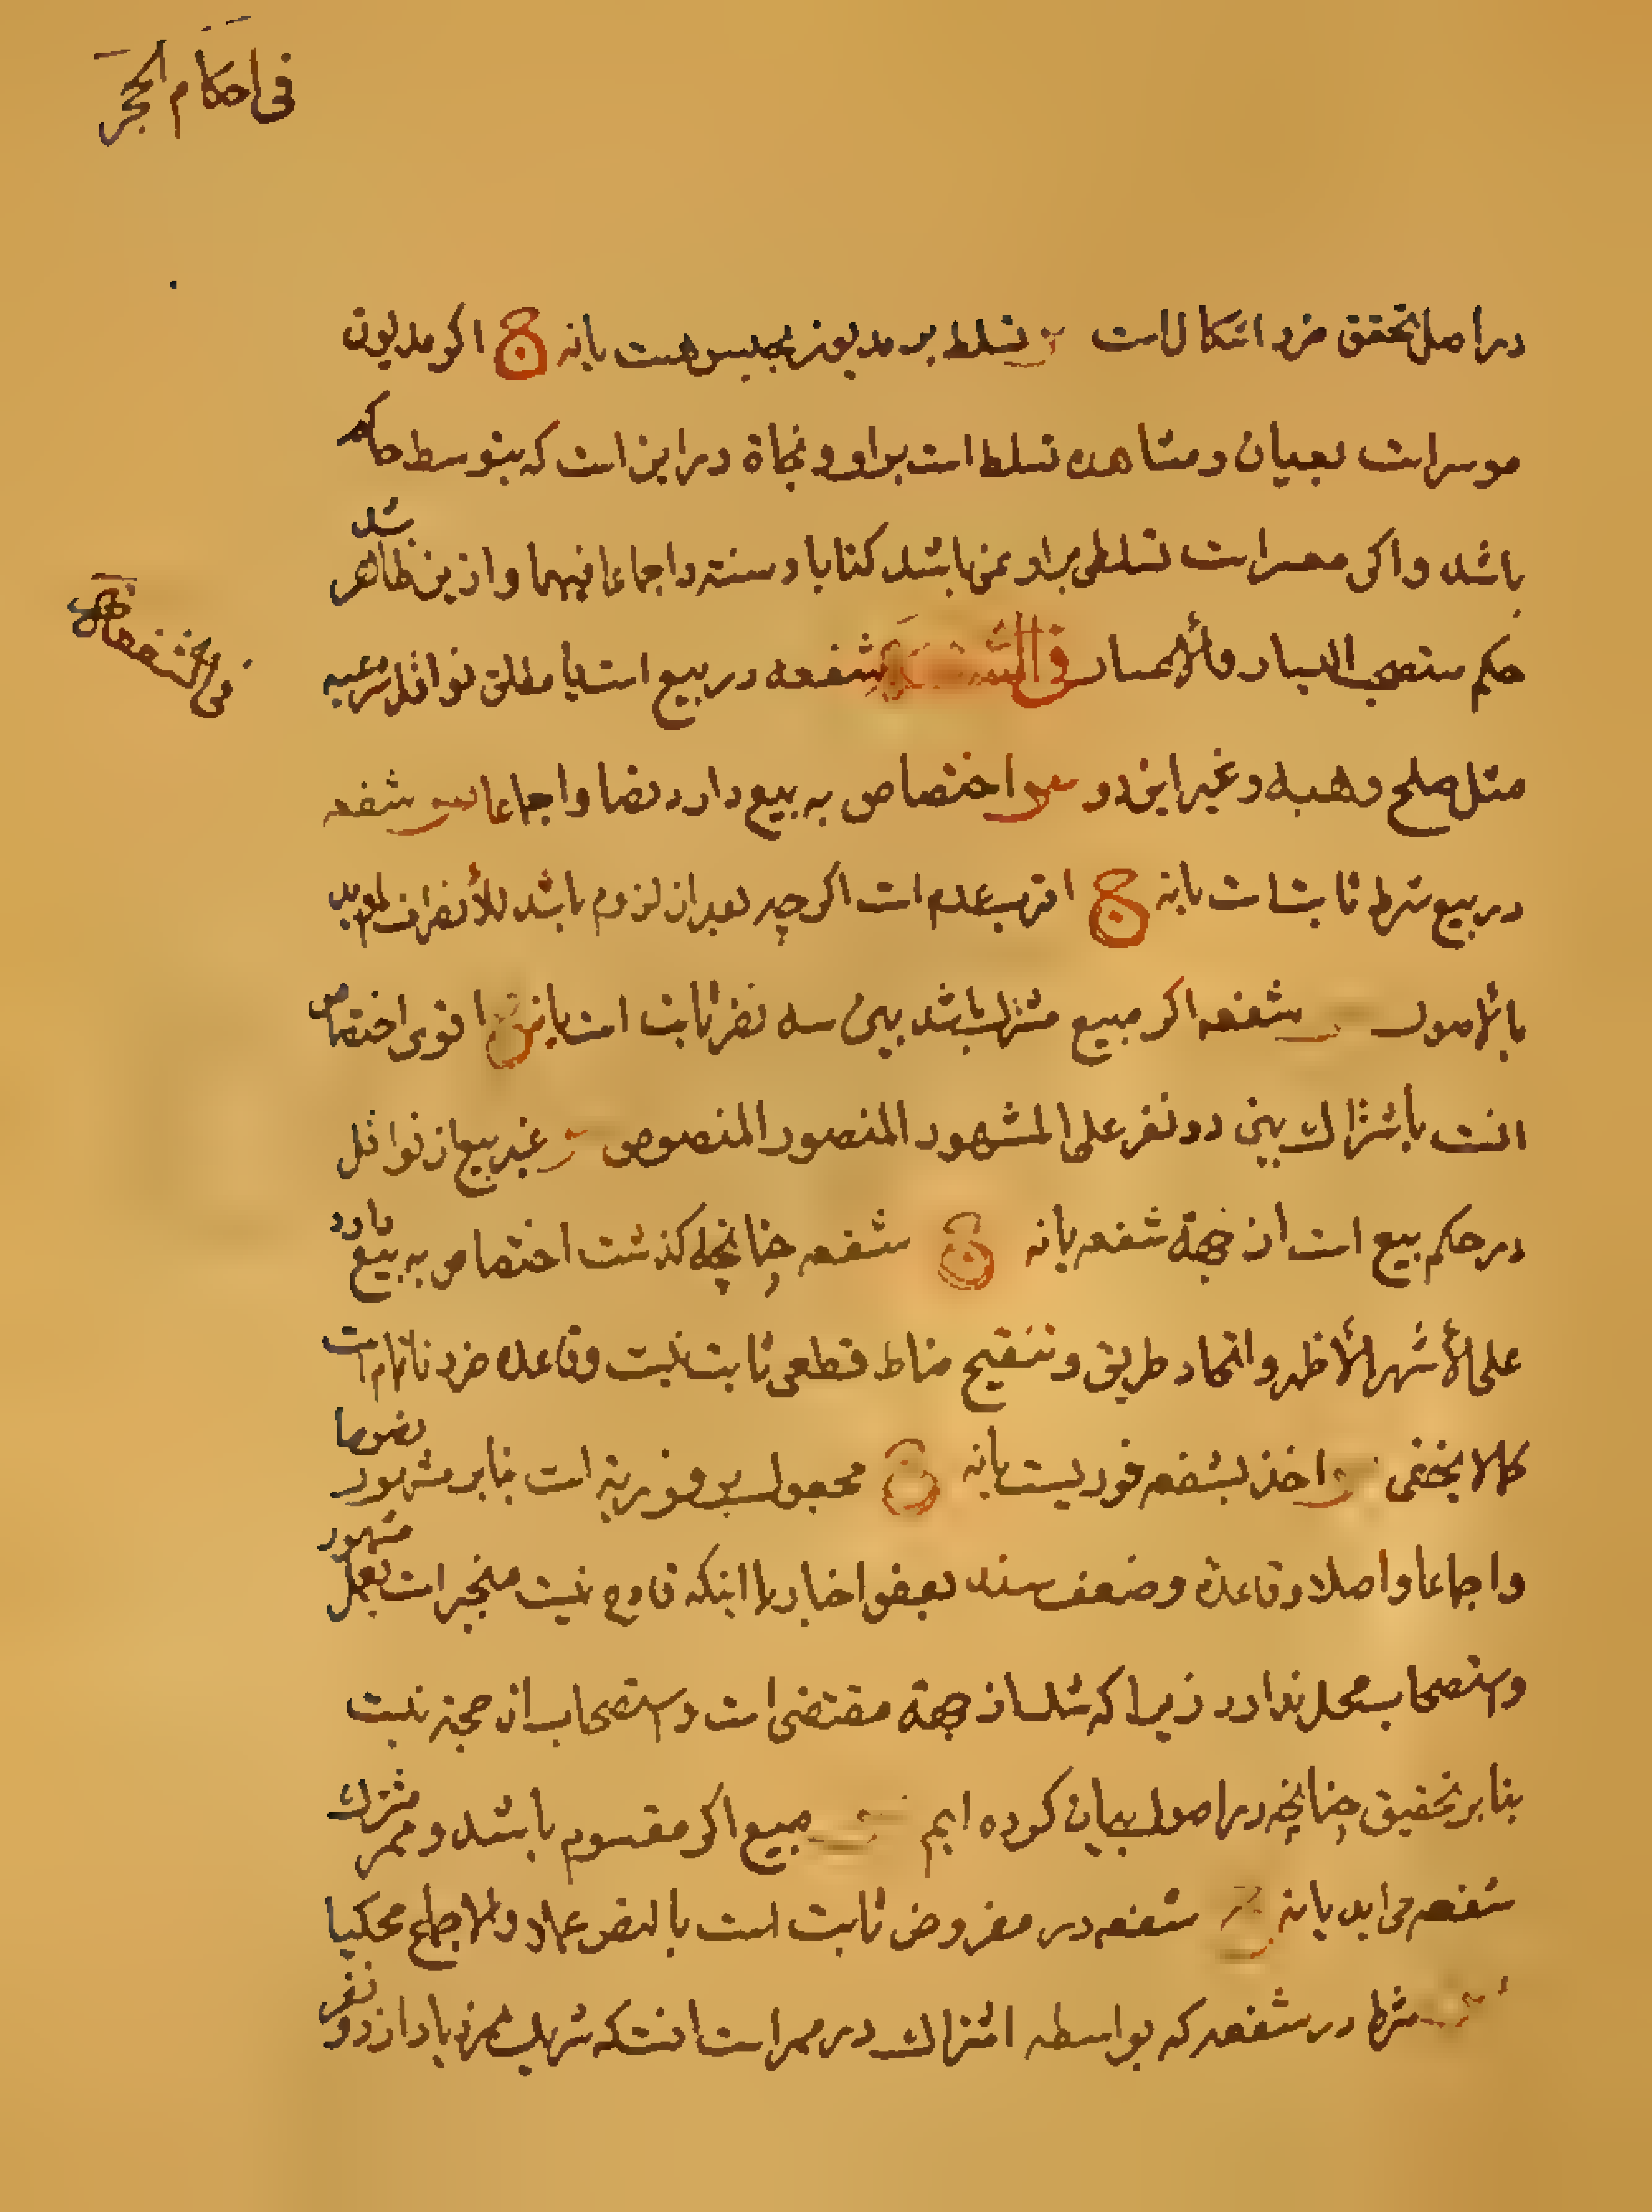 فی احکام الحجر
در اصل تحقق ضرر اشکال است س تسلط بر مدیون بحبس هست یا نه ج اکر مدیون
موسر است بعیان و مشاهده تسلط است بر او و نجاة در این است که بتوسط حاکم
باشد و اکر معسر است تسلطی بر او نمی باشد کتابا و سنته و اجماعا فیهما و از این ظاهر شد
حکم مستصحب الیسار والأعسار فی الشفعة شفعه در بیع است یا مطلق نواقل شرعیه
فی الشفعة
مثل صلح و هبه و غیر این دو اختصاص به بیع دارد نصا و اجماعا س شفعه
در بیع شرط ثابت است یا نه ج اقرب عدم است اکر چه بعد از لزوم باشد للأنصراف المؤید
بالأصول س شفعه اکر مبیع مشترک باشد بین سه نفر ثابت است یا نه ج اقوی اختصاص
انست باشتراک بین دو نفر علی المشهور المنصور المنصوص س غیر بیع از نواقل
در حکم بیع است از جهة شفعه یا نه ج شفعه چنانچه کذشت اختصاص به بیع دارد
علی الأشهر الأظهر و اتحاد طریق و تنقیح مناط قطعی ثابت نیست و قاعده ضرر ناتمام است
کما لا یخفی س اخذ بشفعه فوریست یا نه ج مجعول بر فوریة است بنابر مشهور نصوصا
و اجماعا و اصلا و قاعدة و ضعف سند بعض اخبار با اینکه قادح نیست منجبر است بعمل مشهور
و استصحاب محل ندارد زیرا که شک از جهة مقتضی است و استصحاب ان حجة نیست
بنابر تحقیق چنانچه در اصول بیان کرده ایم س مبیع اکر مقسوم باشد و ممر مشترک
شفعه می اید یا نه ج شفعه در مفروض ثابت است بالنص عماد والاجماع محکیا
س شرط در شفعه که بواسطه اشتراک در ممر است انست که شریک ممر زیاد از دو نفر